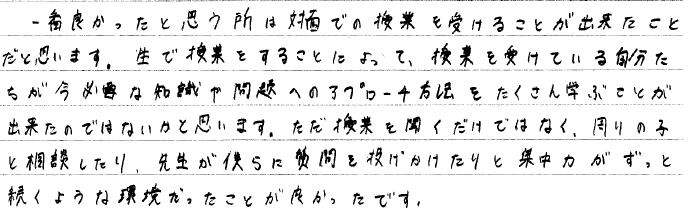 一番良かったと思う所は対面での授業を受けることが出来たこと
だと思います。生で授業をすることによって、授業を受けている自分た
ちが今必要な知識や問題へのアプローチ方法をたくさん学ぶことが
出来たのではないかと思います。ただ授業を聞くだけではなく、周りの子
と相談したり、先生が僕らに質問を投げかけたりと集中力がずっと
続くような環境だったことが良かったです。